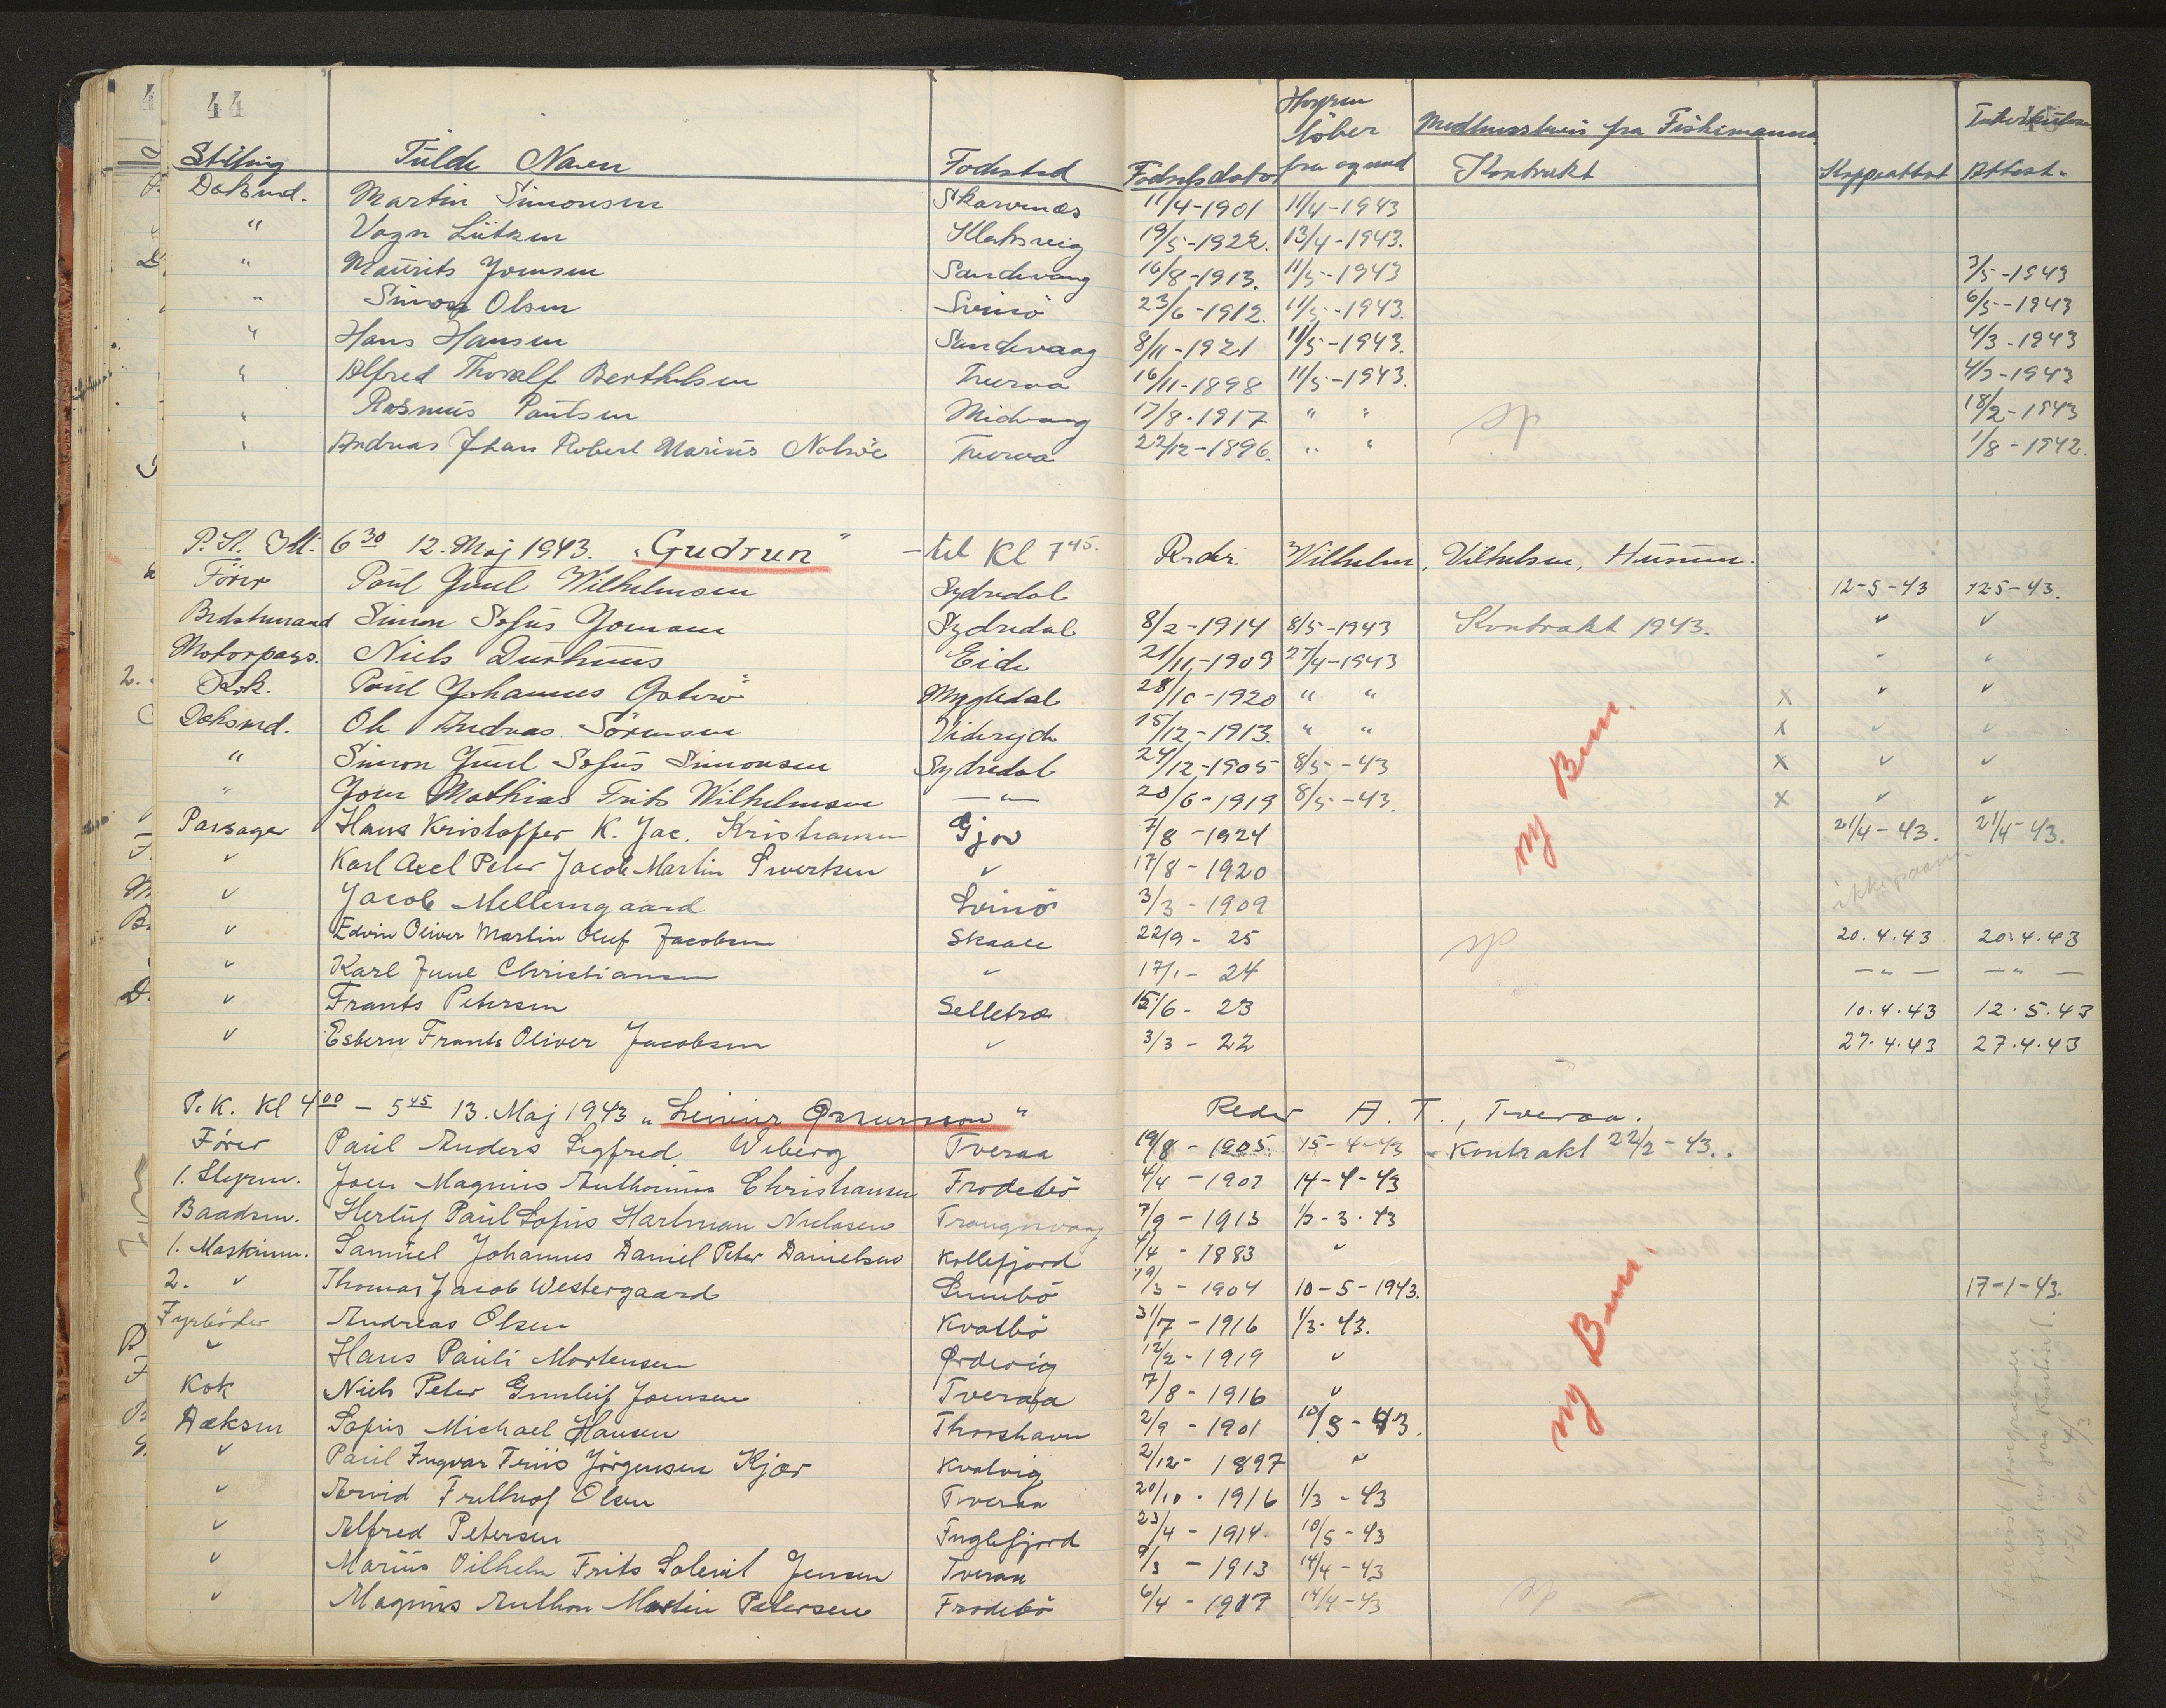 44
Stilling Fulde Navn Fødested Fødselsdato Hyren løber fra og med Medlemsbevis fra Fiskimanna. Kontrakt Koppeattest Tuberkulose Attest.
Dæksmd. Martin Simonsen Skarvanæs 11/4-1901 11/4-1943
" Vagn Lützen Klaksvig 19/5-1922. 13/4-1943.
" Maurits Joensen Sandvaag 16/8-1913. 11/5-1943 3/5-1943
" Simon Olsen Svinö 23/6-1912. 11/5-1943. 6/5-1943
" Hans Hansen Sandvaag 8/11-1921 11/5-1943. 4/3-1943
" Alfred Thoralf Berthelsen Tveraa 16/11-1898 11/5-1943. 4/3-1943
" Rasmus Poulsen Midvaag 17/8-1917 " " sp 18/2-1943
" Andreas Johan Robert Marius Nolsöe Tveraa 22/12-1896. " " 1/8-1942.
P.K. Kl. 6 30 12. Maj 1943. "Gudrun" - til Kl 7 45. Reder. Wilhelm, Vilhelsen, Husum.
Förer Poul Juul Wilhelmsen Sydredal 12-5-43 12-5-43.
Bedstemand Simon Sofus Joensen Sydredal 8/2-1914 8/5-1943 Kontrakt 1943. " "
Motorpass. Niels Durhuus Eide 21/11-1909 27/4-1943 " "
Kok. Poul Johannes Gaterö Mygledal 28/10-1920 " " x " "
Dæksmd. Ole Andreas Sörensen Videreide 15/12-1913. " " x " "
" Simon Juul Sofus Simonsen Sydredal 24/12-1905 8/5-43 x " "
" Joen Mathias Frits Wilhelmsen — " — 20/6-1919 8/5-43. x " "
ny Bem.
Passager Hans Kristoffer K. Jac. Kristiansen Gjov 7/8-1924 21/4-43. 21/4-43.
" Karl Axel Peter Jacob Martin Sivertsen " 17/8-1920
" Jacob Mellemgaard Svinö 3/3-1909 ikke paam.
" Edvin Oliver Martin Oluf Jacobsen Skaale 22/9- 25 sp 20.4.43 20.4.43
" Karl Juul Christiansen " 17/1- 24 — " — — " —
" Frants Petersen Selletræ 15/6- 23 10.4.43 12.5.43
" Esbern Frants Oliver Jacobsen " 3/3- 22 27.4.43 27.4.43
P.K. Kl 4 00 - 5 45 13. Maj 1943 "Leivur Øssursson" Reder A. T., Tveraa.
Förer Paul Anders Sigfred Weberg Tveraa 19/8-1905. 15-4-43 Kontrakt 22/2-43.
1. Styrm. Joen Magnus Anthonius Christiansen Frodebö 4/4-1907 14-4-43
Baadsm. Herluf Paul Sofus Hartman Nielsen Trangisvaag 7/9-1913 1/3-3.43
1. Maskinm. Samuel Johannes Daniel Peter Danielsen Kollefjord 4/4-1883 "
2. " Thomas Jacob Westergaard Sumbö 19/3-1904 10-5-1943. 17-1-43.
Fyrböder Andreas Olsen Kvalbö 31/7-1916 1/3.43.
" Hans Pauli Mortensen Ørdevig 12/2-1919 "
Kok Niels Peter Gunleif Joensen Tveraa 7/8-1916 "
Dæksm Sofus Michael Hansen Thorshavn 2/9-1901 10/3-43.
" Paul Ingvar Friis Jörgensen Kjær Kvalvig 2/12-1897 "
" Arvid Frithiof Olsen Tveraa 20/10.1916 1/3-43
" Alfred Petersen Fuglefjord 23/4-1914. 10/5-43
" Marius Vilhelm Frits Jensen Tveraa 9/3-1913 14/4-43
" Magnus Anthon Martin Petersen Frodebö 6/4-1917 14/4-43
ny Bem.
sp